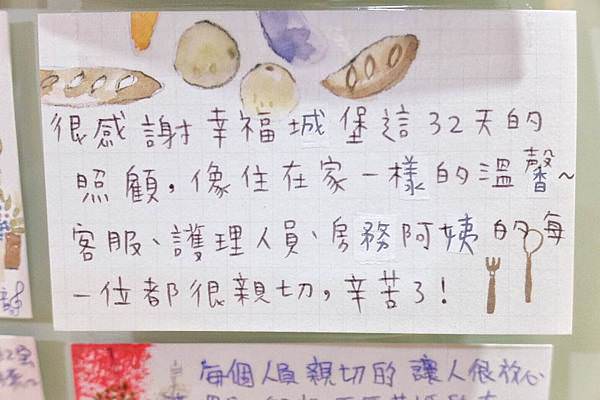 很感謝幸福城堡這32天的
照顧，像住在家一樣的溫馨~
客服、護理人員、房務阿姨的每
一位都很親切，辛苦了！
每個人員親切的讓人很放心